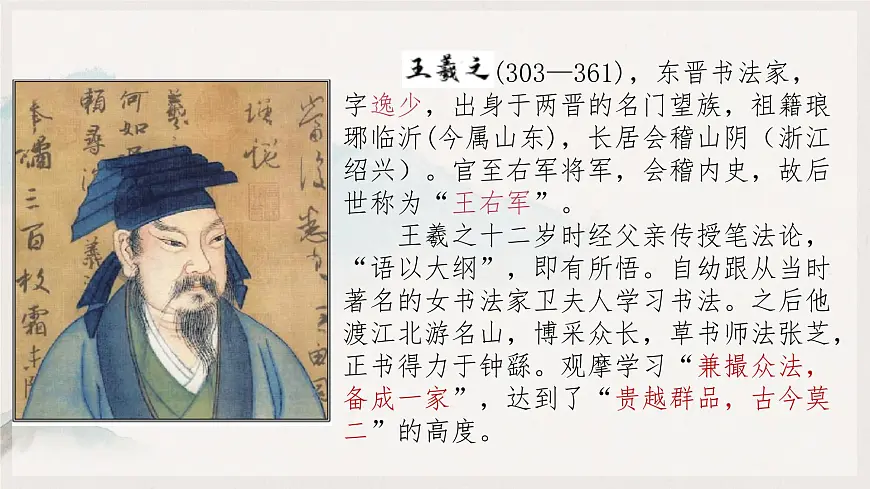 王羲之(303—361)，东晋书法家，
字逸少，出身于两晋的名门望族，祖籍琅
琊临沂(今属山东)，长居会稽山阴（浙江
绍兴）。官至右军将军，会稽内史，故后
世称为“王右军”。
王羲之十二岁时经父亲传授笔法论，
“语以大纲”，即有所悟。自幼跟从当时
著名的女书法家卫夫人学习书法。之后他
渡江北游名山，博采众长，草书师法张芝，
正书得力于钟繇。观摩学习“兼撮众法，
备成一家”，达到了“贵越群品，古今莫
二”的高度。
羲
何如
奉橘三百枚霜未